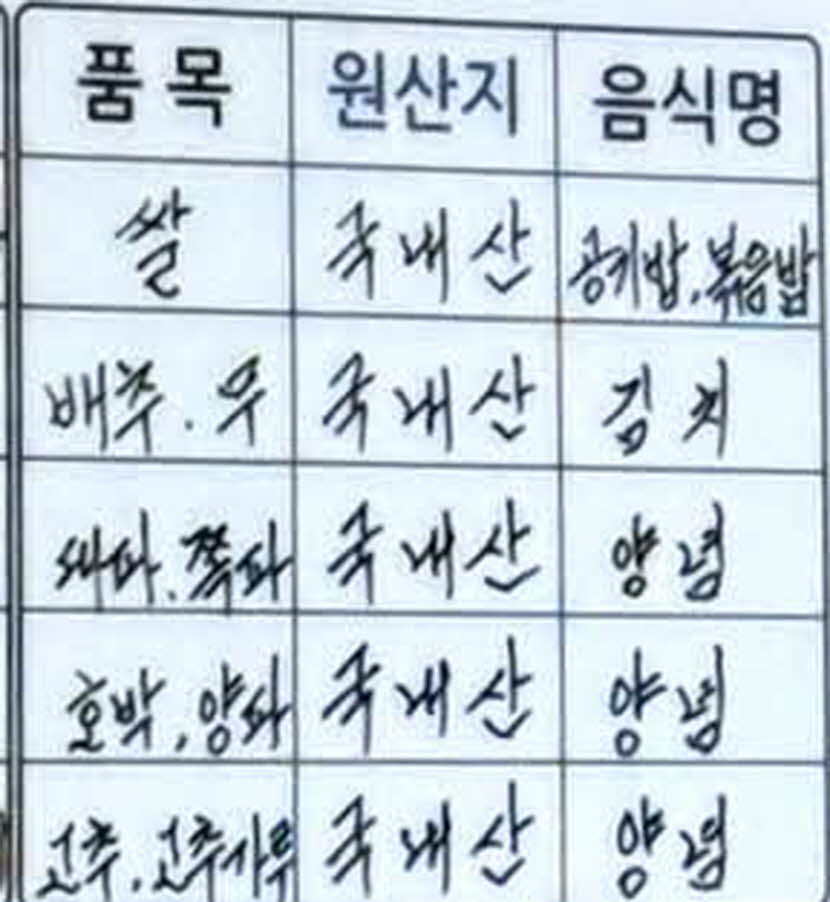 품목 원산지 음식명
쌀 국내산 공기밥, 볶음밥
배추. 무 국내산 김치
대파. 쪽파 국내산 양념
호박, 양파 국내산 양념
고추, 고추가루 국내산 양념